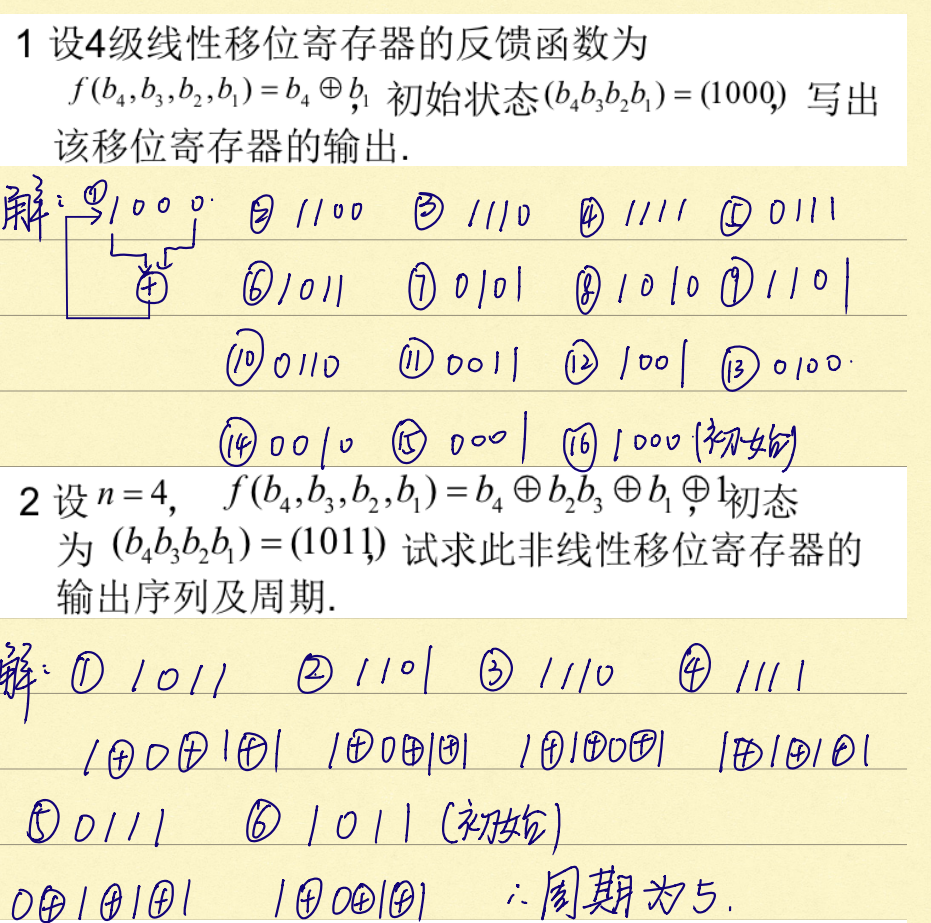 1 设4级线性移位寄存器的反馈函数为
f(b₄,b₃,b₂,b₁)=b₄⊕b₁, 初始状态(b₄b₃b₂b₁)=(1000), 写出
该移位寄存器的输出.
解: ① 1000. ② 1100 ③ 1110 ④ 1111 ⑤ 0111
⊕ ⑥ 1011 ⑦ 0101 ⑧ 1010 ⑨ 1101
⑩ 0110 ⑪ 0011 ⑫ 1001 ⑬ 0100.
⑭ 0010 ⑮ 0001 ⑯ 1000 (初始)
2 设 n=4, f(b₄,b₃,b₂,b₁)=b₄⊕b₂b₃⊕b₁⊕1, 初态
为 (b₄b₃b₂b₁)=(1011), 试求此非线性移位寄存器的
输出序列及周期.
解: ① 1011 ② 1101 ③ 1110 ④ 1111
1⊕0⊕1⊕1 1⊕0⊕1⊕1 1⊕1⊕0⊕1 1⊕1⊕1⊕1
⑤ 0111 ⑥ 1011 (初始)
0⊕1⊕1⊕1 1⊕0⊕1⊕1 ∴周期为5.